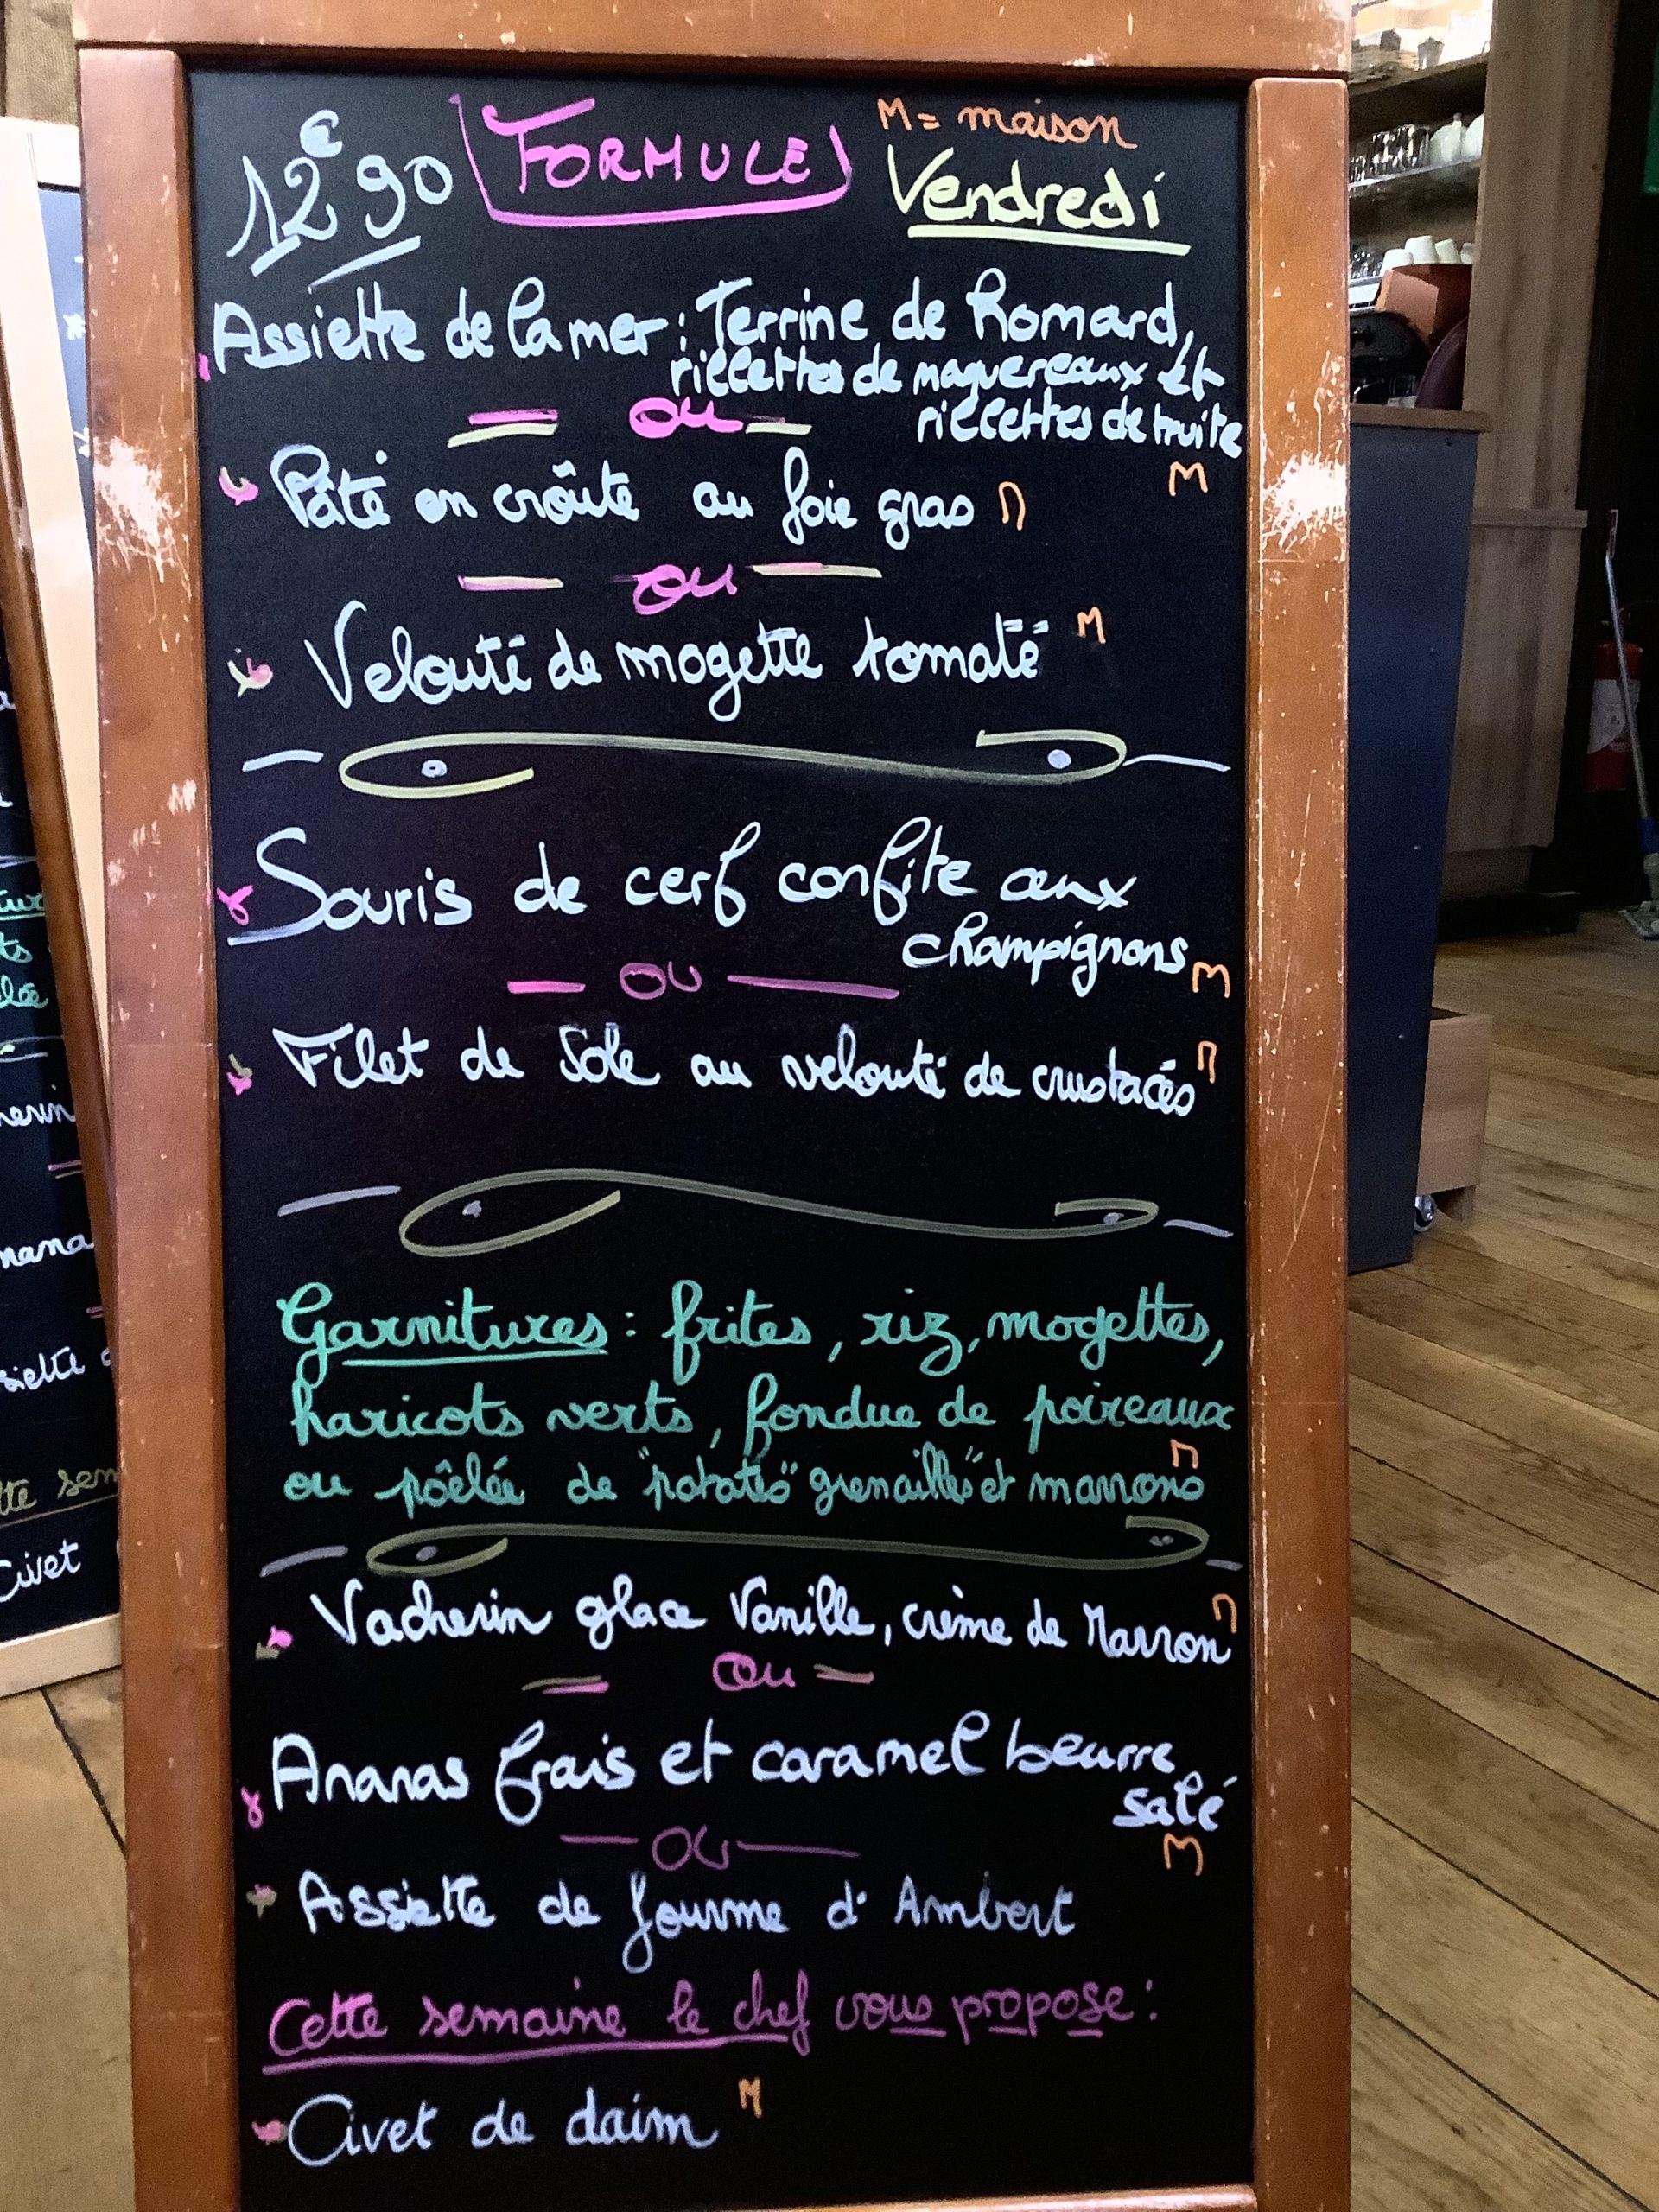 12€90 FORMULE M = maison
Vendredi
Assiette de la mer : Terrine de homard,
rillettes de maquereaux et
rillettes de truite
ou
M
Pâté en croûte au foie gras M
ou
Velouté de mogette "tomaté" M
Souris de cerf confite aux
champignons M
ou
Filet de Sole au velouté de crustacés M
Garnitures : frites, riz, mogettes,
haricots verts, fondue de poireaux
ou pôelée de "potatoes" "grenailles" et marrons M
Vacherin glace Vanille, crème de Marron M
ou
Ananas frais et caramel beurre
salé
M
ou
Assiette de fourme d'Ambert
Cette semaine le chef vous propose :
Civet de daim M
Civet